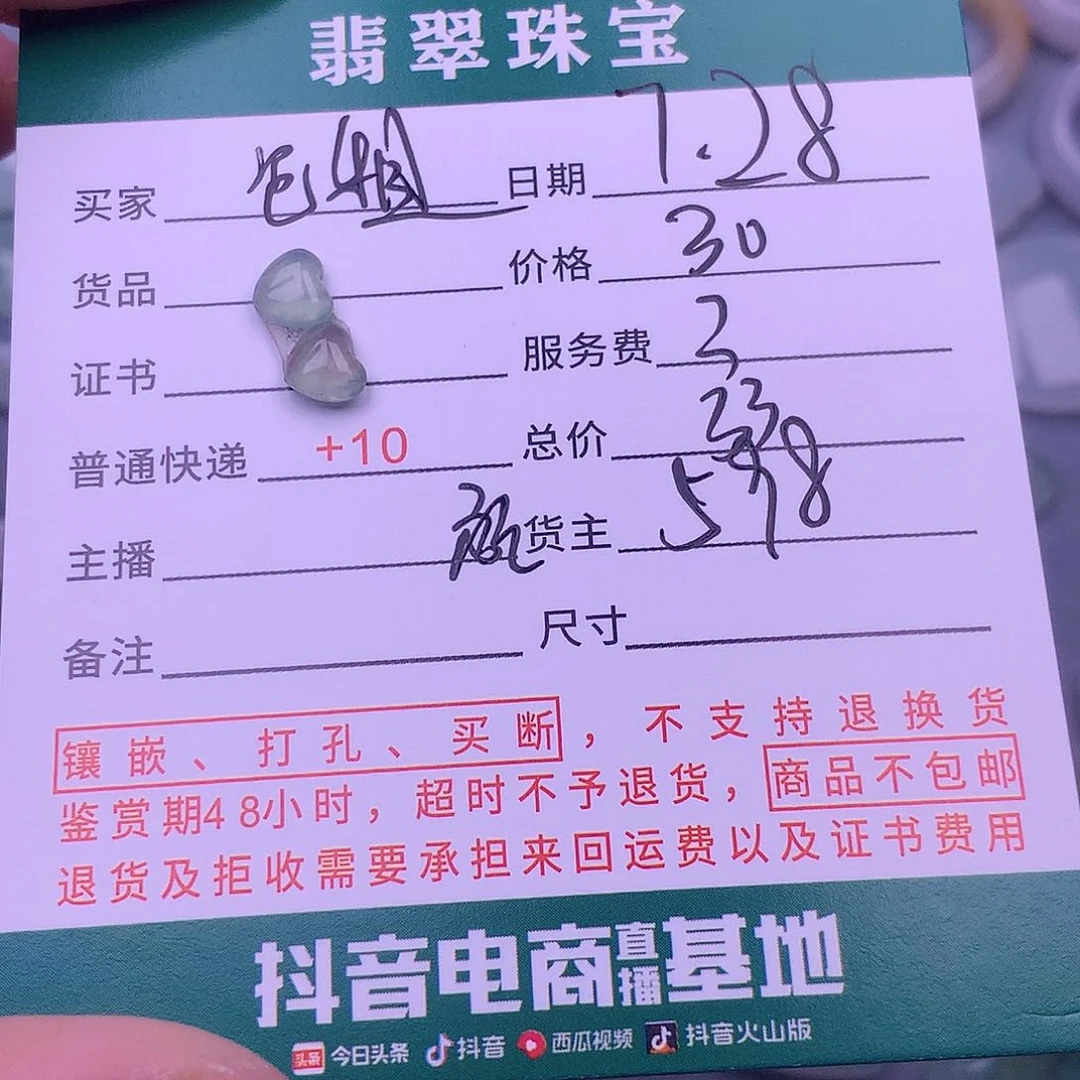 翡翠珠宝
买家 日期 7.28
货品 价格 30
证书 服务费 3
普通快递 +10 总价 33
主播 货主 598
备注 尺寸
镶嵌、打孔、买断，不支持退换货
鉴赏期48小时，超时不予退货，商品不包邮
退货及拒收需要承担来回运费以及证书费用
抖音电商直播基地
头条 今日头条 抖音 西瓜视频 抖音火山版